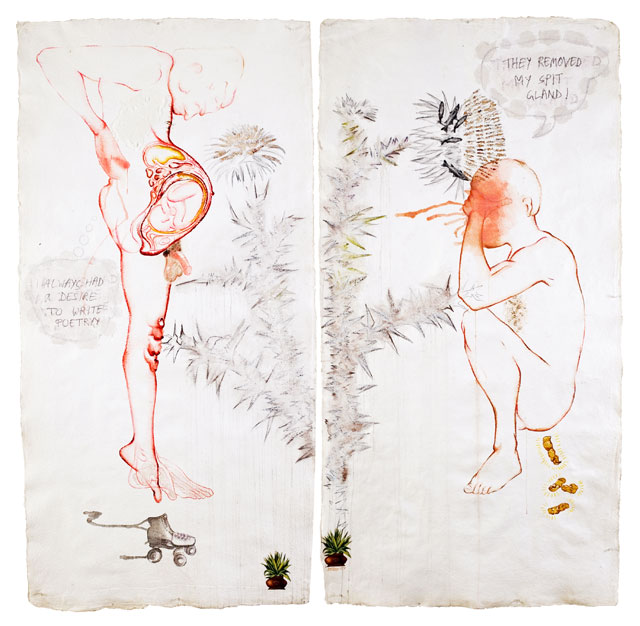 I ALWAYS HAD
A DESIRE
TO WRITE
POETRAY
THEY REMOVED
MY SPIT
GLAND!